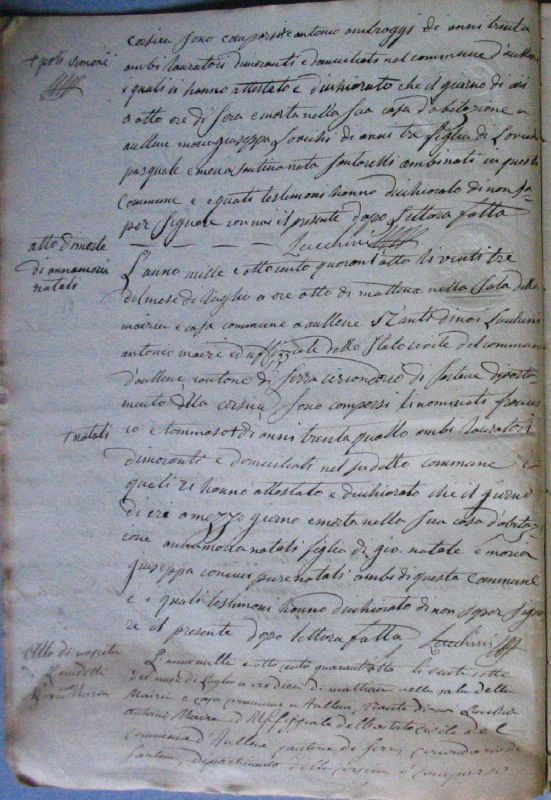 corsica sono comparsi antonio ambroggi di anni trenta
+ poli simone
ambi lauratori dimoranti e domiciliati nel commune d'aullene
e quali ci hanno attestato e dichiarato che il giorno di ieri
a otto ore di sera e morta nella sua casa d'abitazione a
aullene maria giuseppa di anni tre figlia di
pasquale e maria santina nata ambinati in questa
Commune e i quali testimoni hanno dichiarato di non sa-
per signare con noi il presente dopo lettura fatta
Lucchini
atto di morte
di annamaria
natali
L'anno mille e ottocento quarant'otto li venti tre
del mese di luglio a ore otto di mattina nella sala della
mairia e casa commune a aullene d'anti di noi Lucchini
antonio maire ed uffizziale dello stato civile del commune
d'aullene cantone di serra circondario di sartene diparti-
mento della corsica sono comparsi li nominati
+ natali
e tommaso + di anni trenta quattro ambi lauratori
dimoranti e domiciliati nel sudetto commune i
quali ci hanno attestato e dichiarato che il giorno
di ieri a mezzo giorno e morta nella sua casa d'abita-
cone annamaria natali figlia di gio. natale e maria
giuseppa pure natali ambi di questa Commune
e i quali testimoni hanno dichiarato di non saper signa-
re il presente dopo lettura fatta Lucchini
Atto di nascita
L'anno mille e otto cento quarant'otto li venti sette
del mese di Luglio a ore dieci di mattina nella sala della
Mairia e casa commune a Aullene, d'anti di noi Lucchini
antonio Maire ed Uffizziale dello stato civile del
commune d'Aullene, cantone di serra, circondario di
sartene, dipartimento della corsica è comparso